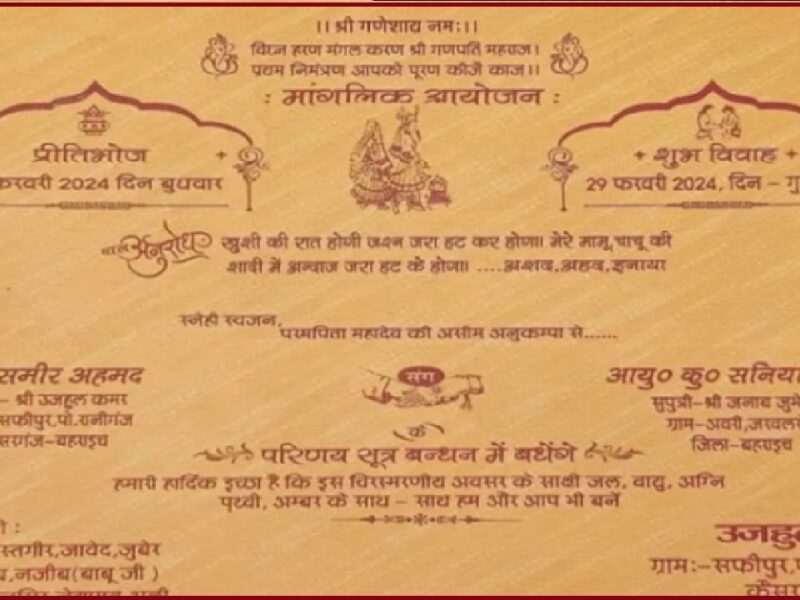 ।। श्री गणेशाय नमः।।
विघ्न हरण मंगल करण श्री गणपति महाराज।
प्रथम निमंत्रण आपको पूरण कीजै काज।।
: मांगलिक आयोजन :
प्रीतिभोज
शुभ विवाह
2024 दिन बुधवार
29 फरवरी 2024, दिन –
बाल अनुरोध
खुशी की रात होगी जश्न जरा हट कर होगा। मेरे मामू,चाचू की
शादी में अन्दाज जरा हट के होगा। ....अशद,अहद,इनाया
स्नेही स्वजन,
परमपिता महादेव की असीम अनुकम्पा से......
समीर अहमद
संग
आयु० कु० सनिया
– श्री उजहूल कमर
सुपुत्री–श्री जनाब
सफीपुर,पो.रानीगंज
ग्राम–अवरी,जरवल
–बहराइच
जिला–बहराइच
के
परिणय सूत्र बन्धन में बधेंगे
हमारी हार्दिक इच्छा है कि इस चिरस्मरणीय अवसर के साक्षी जल, वायु, अग्नि
पृथ्वी, अम्बर के साथ – साथ हम और आप भी बनें
जावेद,जुबेर
नजीब(बाबू जी )
ग्राम:–सफीपुर,